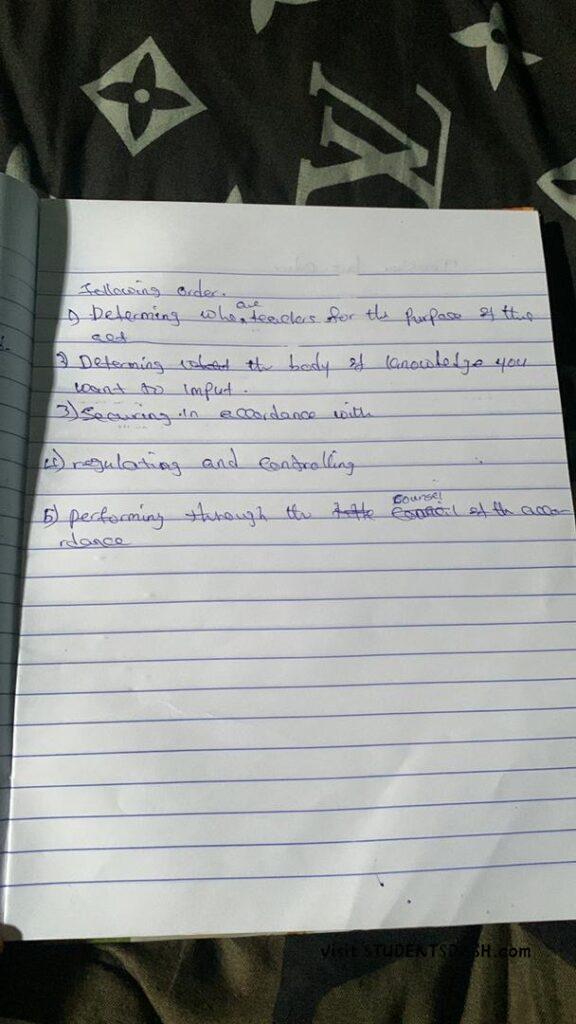 following order.
1) Determing who are teachers for the purpose of this
act
2) Determing the body of knowledge you
want to imput.
3) Securing in accordance with
4) regulating and controlling
5) performing through the council of th acco-
rdance
visit STUDENTSDASH.com